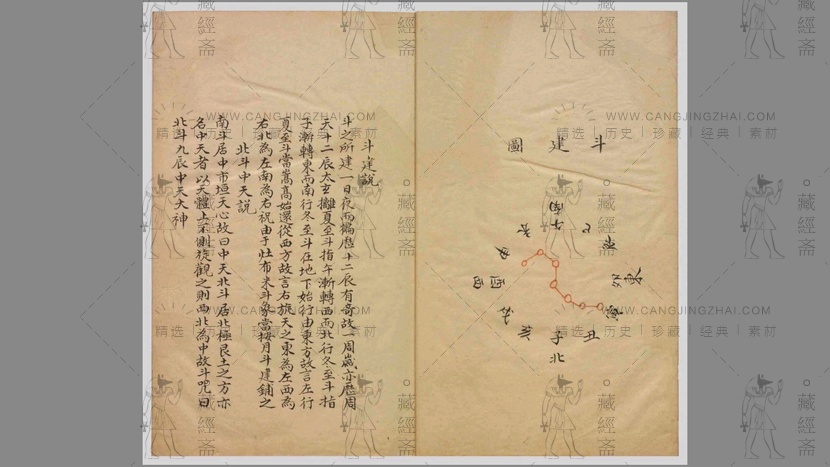 斗建圖
南
午
巳
申
酉
西
東
卯
寅
丑
子
北
亥
戌
斗建說
斗之所建一日夜而徧歷十二辰有奇故一周歲亦歷周
天十二辰太玄攡夏至斗指午漸轉西而北行冬至斗指
子漸轉東而南行冬至斗在地下始行由東方故言左行
夏至斗當嵩高始還從西方故言右旋天之東為左西為
右北為左南為右祝由于灶布米斗象當按月斗建鋪之
北斗中天說
南斗居中市垣天心故曰中天北斗居北極艮土之方亦
名中天者以天體上下側旋觀之則西北為中故斗咒曰
北斗九辰中天大神
WWW.CANGJINGZHAI.COM
精选 | 历史 | 珍藏 | 经典 | 素材
藏經斋